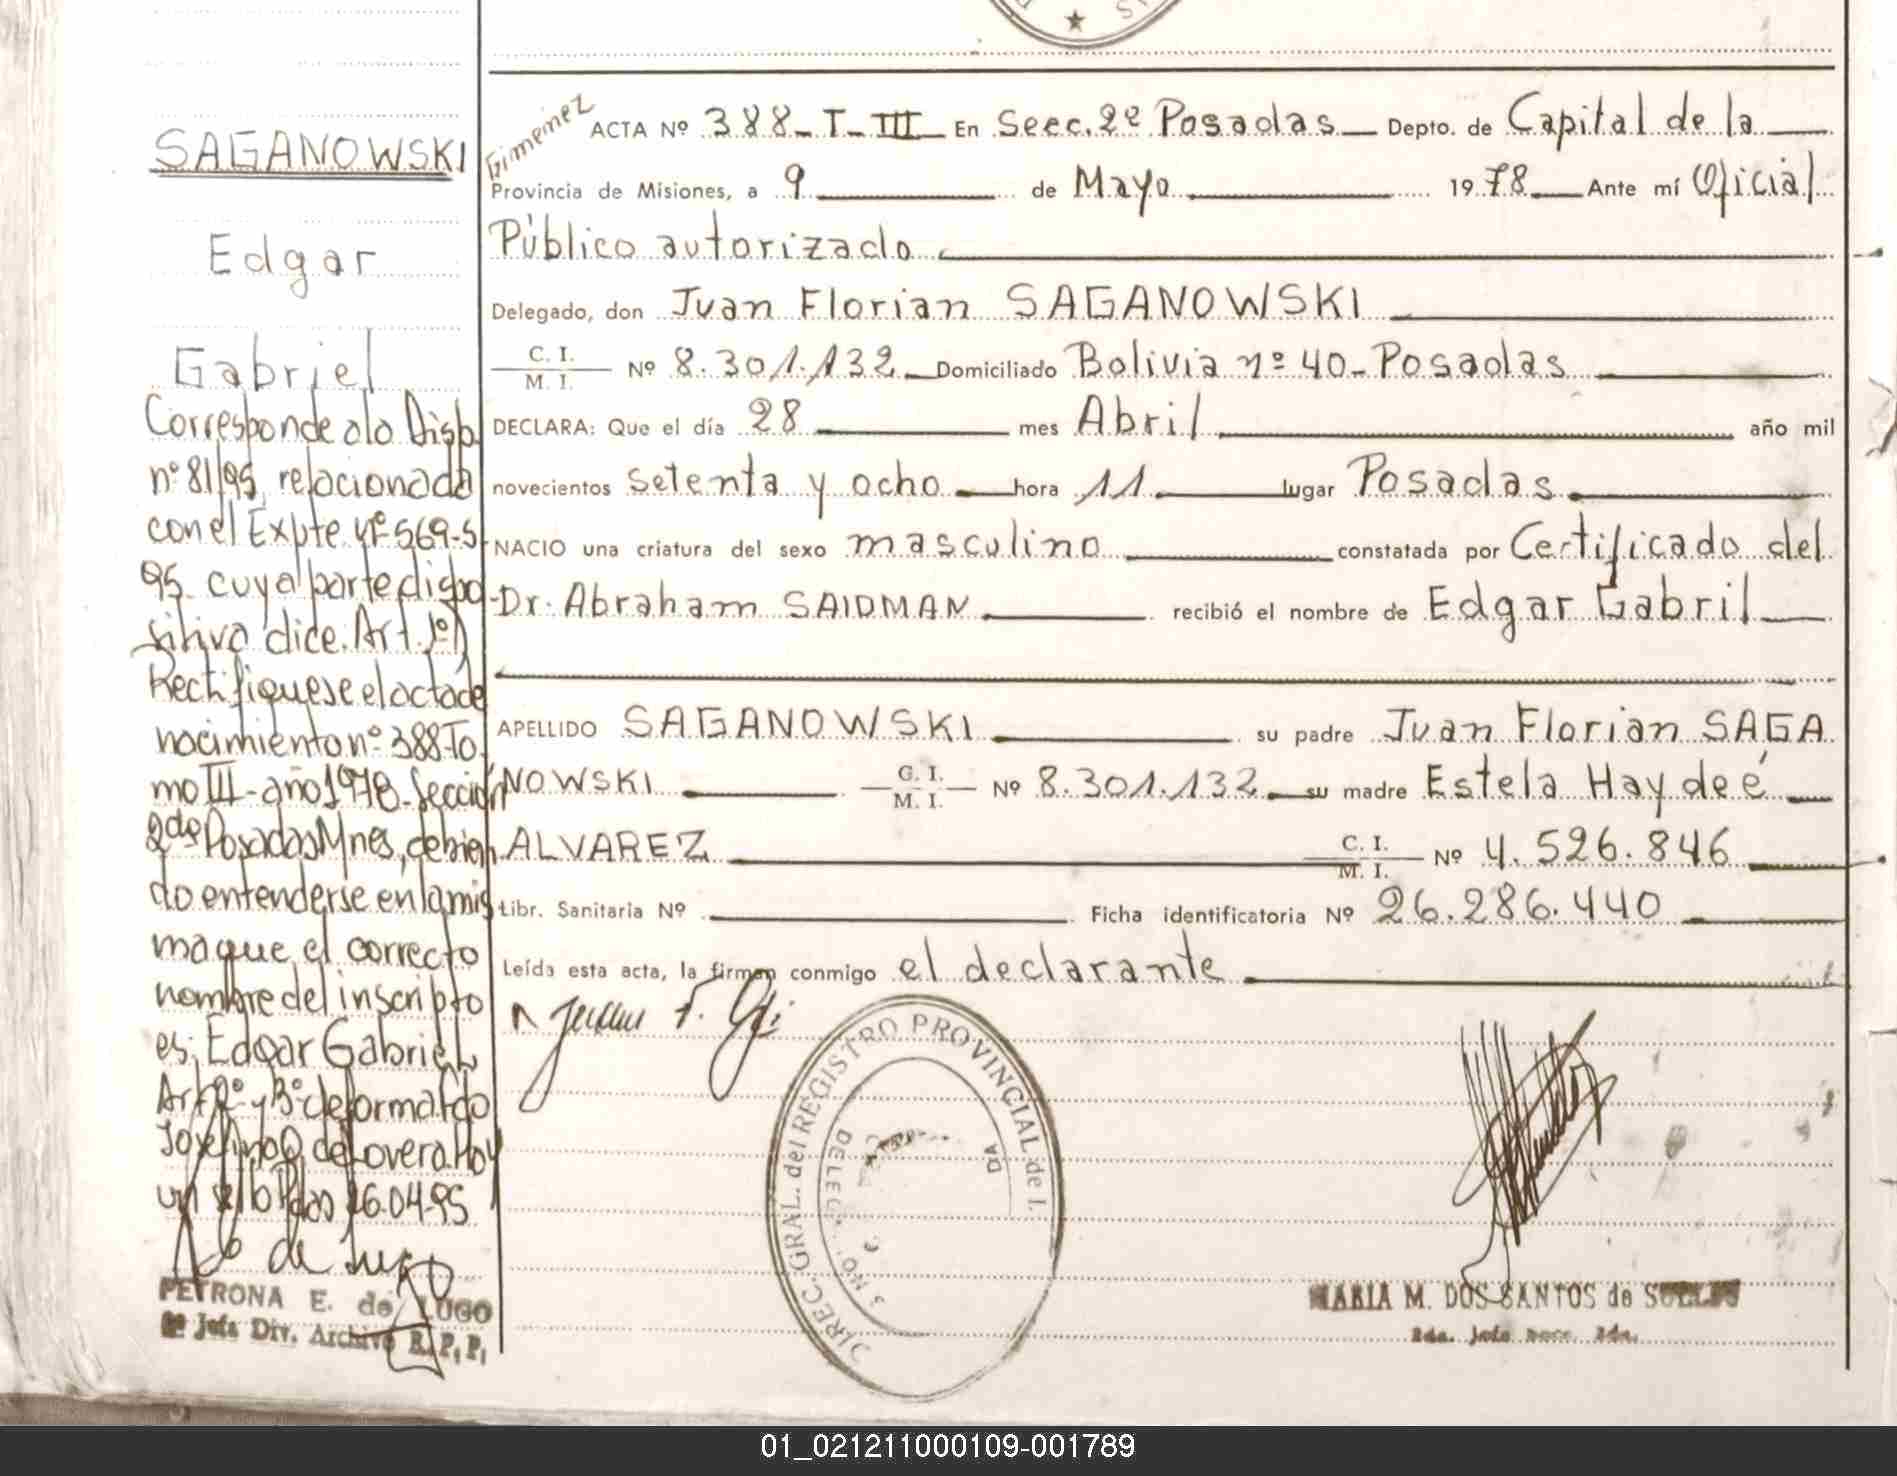 SAGANOWSKI
Edgar
Gabriel
Corresponde a la Disp.
nº 81/95, relacionada
con el Expte nº 569-S-
95 cuya parte dispo-
sitiva dice. Art. 1º)
Rectifiquese el acta de
nacimiento nº 388-To
mo III-año 1978-Sección
2da Posadas Mnes, debien
do entenderse en la mis
ma que el correcto
nombre del inscripto
es: Edgar Gabriel
Art 2º y 3º de forma Fdo
26.04.95
PETRONA E. de LUGO
2º Jefa Div. Archivo R.P.P.
Gimemez
ACTA Nº 388-T-III En Secc.2º Posadas Depto. de Capital de la
Provincia de Misiones, a 9 de Mayo 1978 Ante mí Oficial
Público autorizado
Delegado, don Juan Florian SAGANOWSKI
C. I.
M. I. Nº 8.301.132 Domiciliado Bolivia nº 40-Posadas
DECLARA: Que el día 28 mes Abril año mil
novecientos setenta y ocho hora 11 lugar Posadas
NACIO una criatura del sexo masculino constatada por Certificado del
Dr. Abraham SAIDMAN recibió el nombre de Edgar Gabril
APELLIDO SAGANOWSKI su padre Juan Florian SAGA
NOWSKI C. I. M. I. Nº 8.301.132 su madre Estela Haydeé
ALVAREZ C. I. M. I. Nº 4.526.846
Libr. Sanitaria Nº Ficha identificatoria Nº 26.286.440
Leída esta acta, la firman conmigo el declarante
DIREC. GRAL. del REGISTRO PROVINCIAL de
MARIA M. DOS SANTOS de
01_021211000109-001789